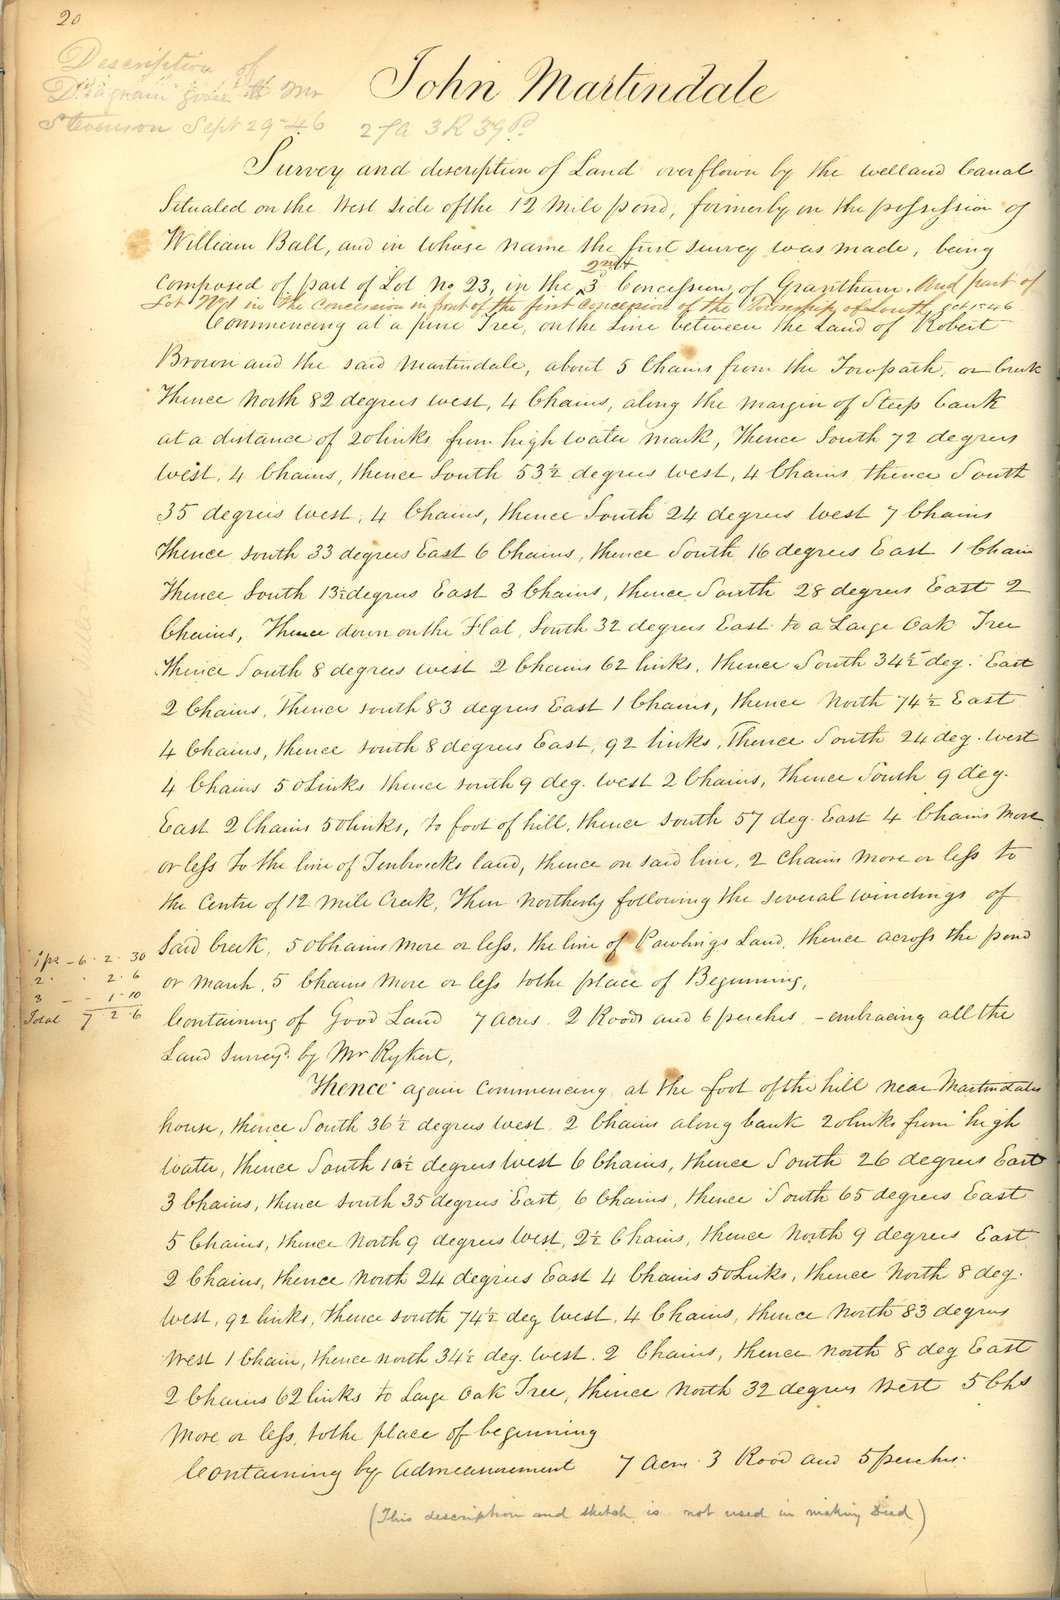 20
Description of
Diagram given to Mr
Stevenson Sept 29 - 46 27A 3R 39P.
John Martindale
Survey and discription of Land overflown by the welland Canal
Situated on the West side of the 12 mile pond, formerly in the possession of
William Ball, and in whose name the first survey was made, being
2nd
composed of part of Lot no 23, in the 3 Concession, of Grantham. And part of
Lot No 1 in the Concession in front of the first Concession of the Township of Louth
Commencing at a pine Tree, on the Line between the Land of Robert
Brown and the said Martindale, about 5 Chains from the Towpath, or creek
Thence North 82 degrees west, 4 Chains, along the margin of Steep bank
at a distance of 20 links from high water mark, Thence South 72 degrees
West, 4 Chains, thence South 53½ degrees west, 4 Chains thence South
35 degrees west, 4 Chains, thence South 24 degrees West 7 Chains
Thence south 33 degrees East 6 Chains, thence South 16 degrees East 1 Chain
Thence South 13½ degrees East 3 Chains, thence South 28 degrees East 2
Chains, Thence down on the Flat, South 32 degrees East to a Large Oak Tree
Thence South 8 degrees west 2 Chains 62 links, thence South 34½ deg. East
2 Chains, Thence south 83 degrees East 1 Chains, thence North 74½ East
4 Chains, thence south 8 degrees East, 92 links, Thence South 24 deg. West
4 Chains 50 Links thence south 9 deg. West 2 Chains, thence South 9 deg.
East 2 Chains 50 links, to foot of hill, thence south 57 deg. East 4 Chains more
or less to the line of Tenbroecks land, thence on said line, 2 chains more or less to
the Centre of 12 mile Creek, Then northerly following the several windings of
said Creek, 50 Chains more or less, the line of Pawlings Land, thence across the pond
or marsh, 5 Chains more or less to the place of Beginning,
Containing of Good Land 7 acres. 2 Roods and 6 perches, - embracing all the
Land survey'd. by Mr Rykert,
1 pe - 6. 2. 30
2. 2. 6
3 - - 1. 10
Total 7 2. 6
Thence again commencing at the foot of the hill near Martindales
house, thence South 36½ degrees west, 2 Chains along bank 20 links from high
Water, thence South 10½ degrees West 6 Chains, thence South 26 degrees East
3 Chains, thence south 35 degrees East, 6 Chains, thence South 65 degrees East
5 Chains, thence North 9 degrees West, 2½ Chains, thence North 9 degrees East
2 Chains, thence North 24 degrees East 4 Chains 50 Links, thence North 8 deg.
West, 92 links, thence south 74½ deg West, 4 Chains, thence North 83 degrees
West 1 Chain, thence north 34½ deg. West. 2 Chains, thence north 8 deg East
2 Chains 62 links to Large Oak Tree, thence North 32 degrees West 5 Chs
More or less, to the place of beginning
Containing by Admeasurement 7 Acres 3 Rood and 5 perches.
(This description and sketch is not used in making Deed)